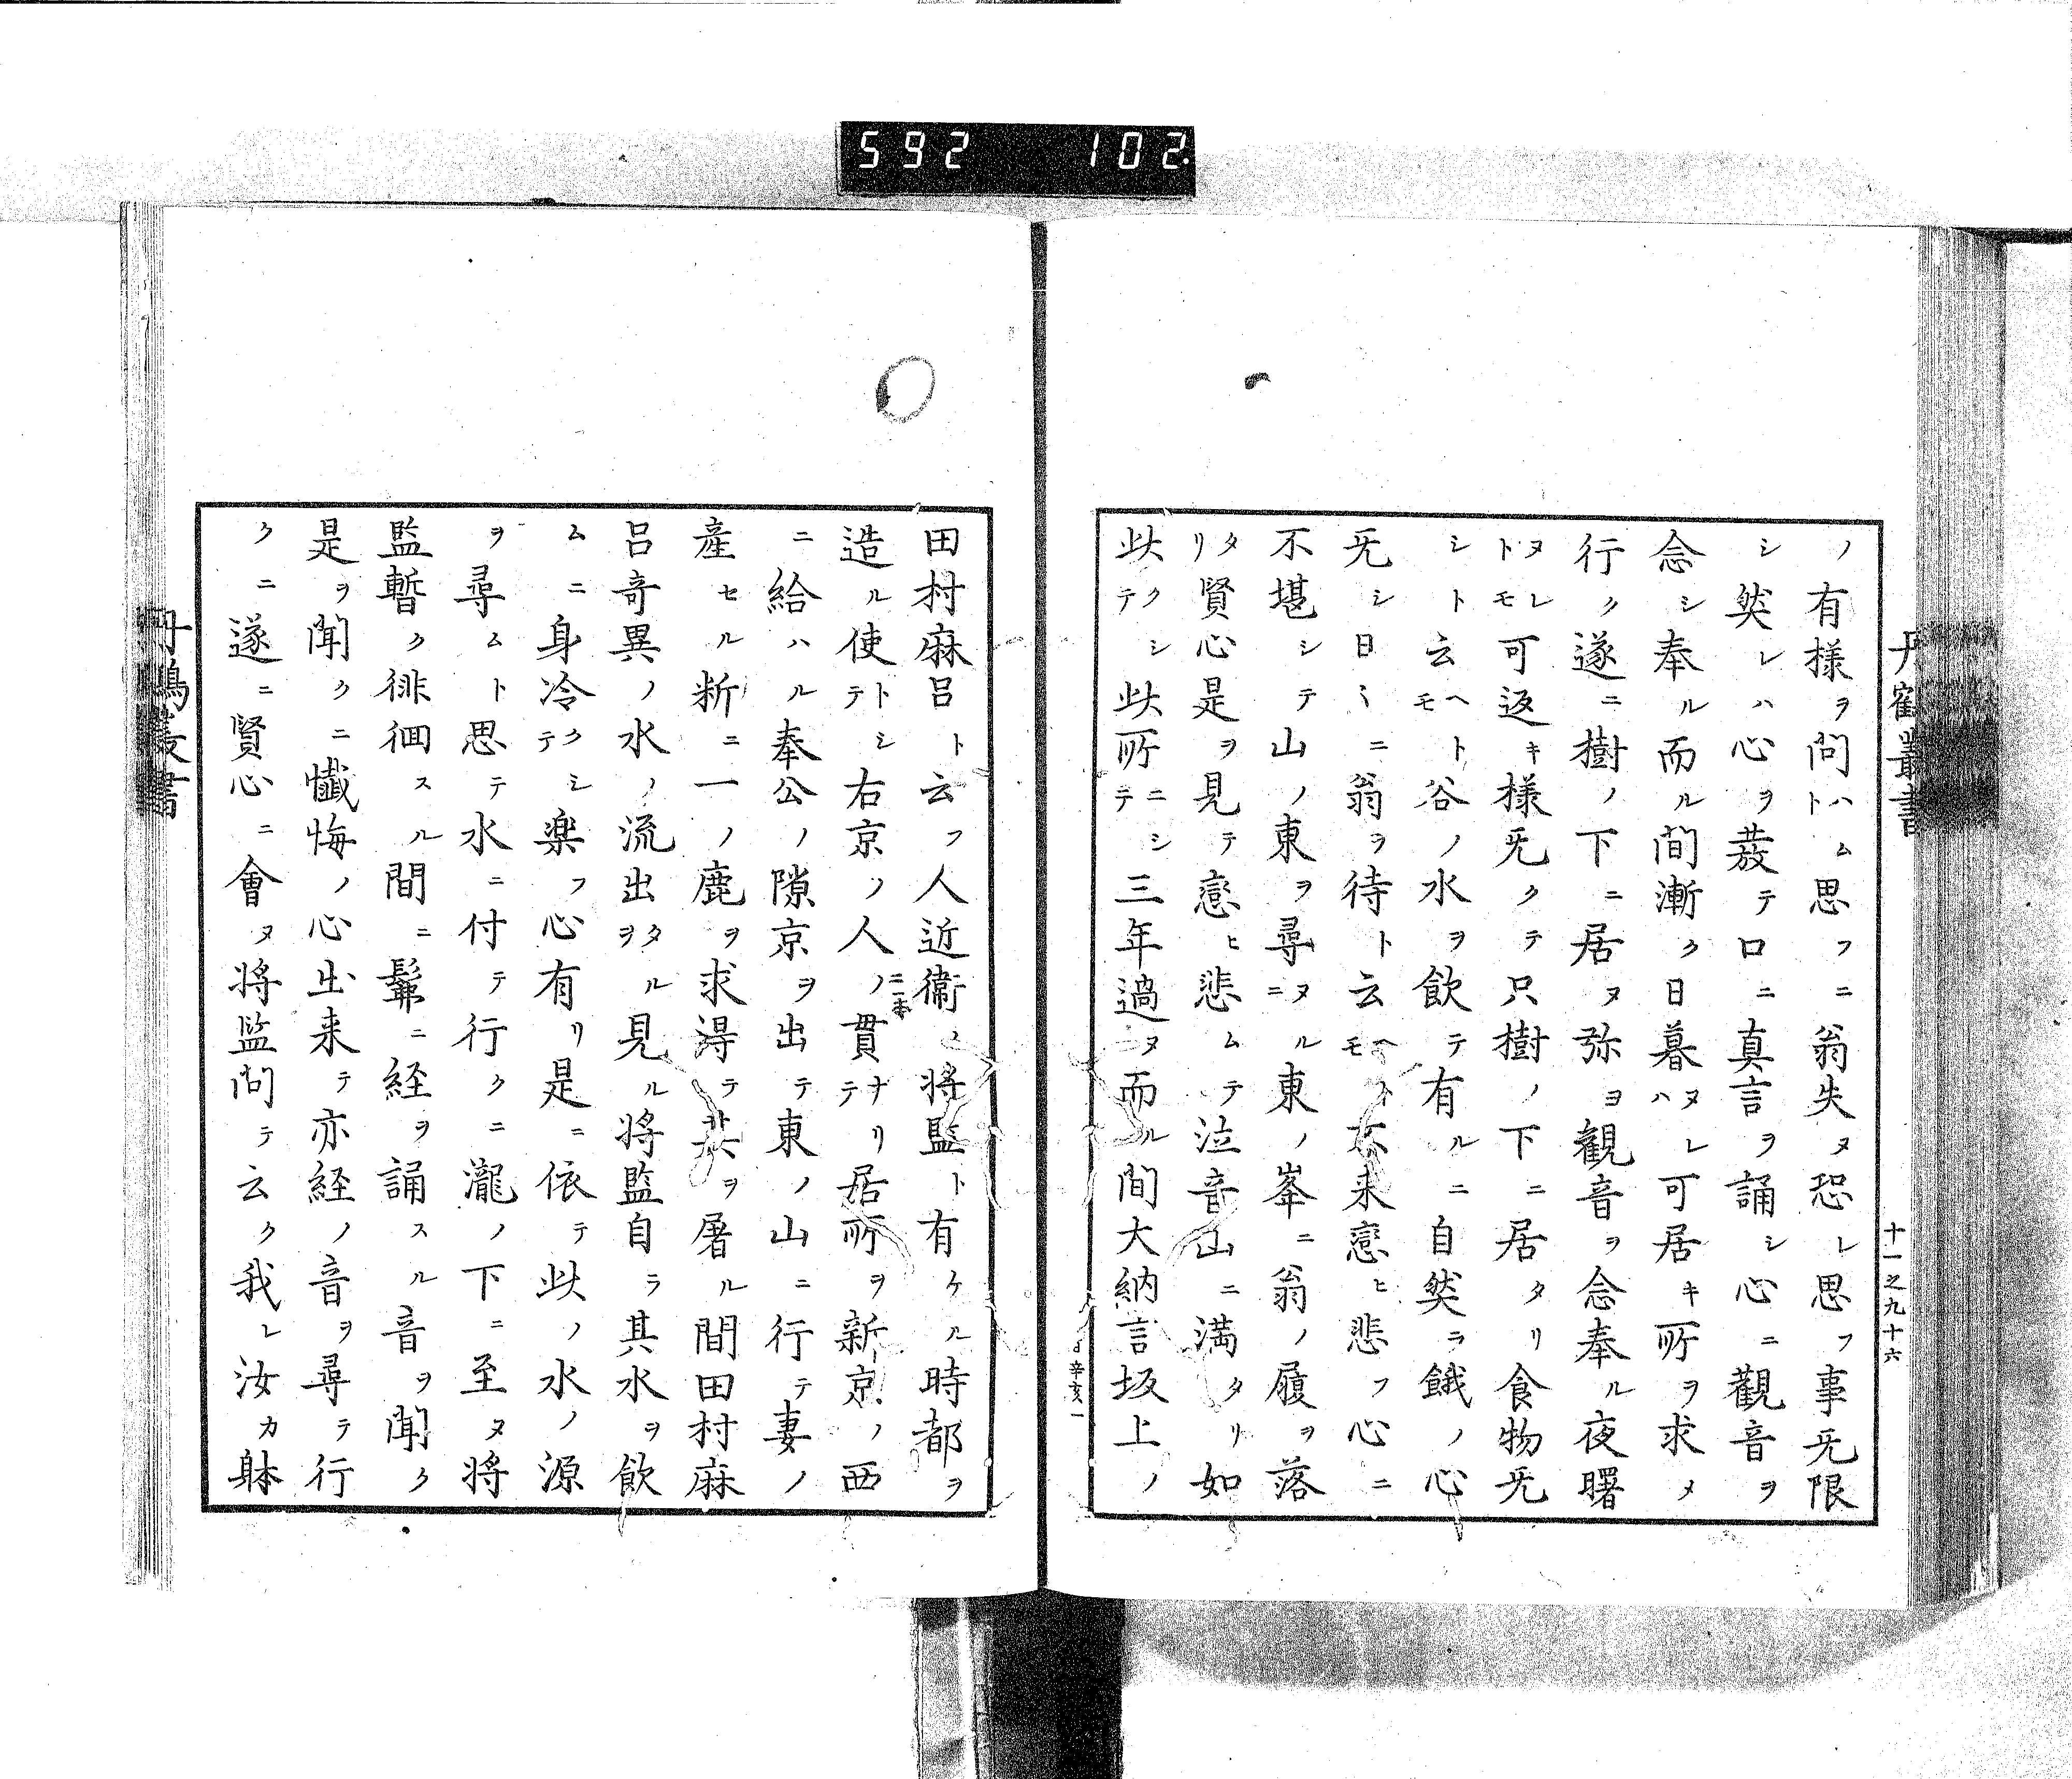 592 102
丹鶴叢書
十一之九十六
ノ有様ヲ問ハムト思フニ翁失ヌ恐レ思フ事无限
シ然レハ心ヲ菆テ口ニ真言ヲ誦シ心ニ觀音ヲ
念シ奉ル而ル間漸ク日暮ヌレハ可居キ所ヲ求メ
行ク遂ニ樹ノ下ニ居ヌ弥ヨ觀音ヲ念奉ル夜曙
ヌレトモ可返キ様无クテ只樹ノ下ニ居タリ食物无
シト云ヘトモ谷ノ水ヲ飲テ有ルニ自然ラ餓ノ心
无シ日〻ニ翁ヲ待ト云ヘトモ不来戀ヒ悲フ心ニ
不堪シテ山ノ東ヲ尋ヌルニ東ノ峯ニ翁ノ履ヲ落
タリ賢心是ヲ見テ戀ヒ悲ムテ泣音山ニ満タリ如
此クシテ此所ニシテ三年過ヌ而ル間大納言坂上ノ
辛亥一
田村麻呂ト云フ人近衞ノ将監ト有ケル時都ヲ
造ル使トシテ右京ノ人ノ貫ナリテ居所ヲ新京ノ西
ニ一本
ニ給ハル奉公ノ隙京ヲ出テ東ノ山ニ行テ妻ノ
産セル㫁ニ一ノ鹿ヲ求淂テ其ヲ屠ル間田村麻
呂奇異ノ水ノ流出タルヲ見ル将監自ラ其水ヲ飲
ムニ身冷クシテ楽フ心有リ是ニ依テ此ノ水ノ源
ヲ尋ムト思テ水ニ付テ行クニ瀧ノ下ニ至ヌ将
監暫ク徘徊スル間ニ髴ニ経ヲ誦スル音ヲ聞ク
是ヲ聞クニ懺悔ノ心出来テ亦経ノ音ヲ尋テ行
クニ遂ニ賢心ニ會ヌ将監問テ云ク我レ汝カ躰
丹鶴叢書